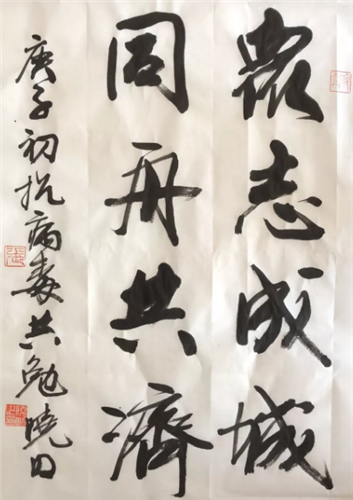 眾志成城
同舟共濟
庚子初抗病毒共勉曉日